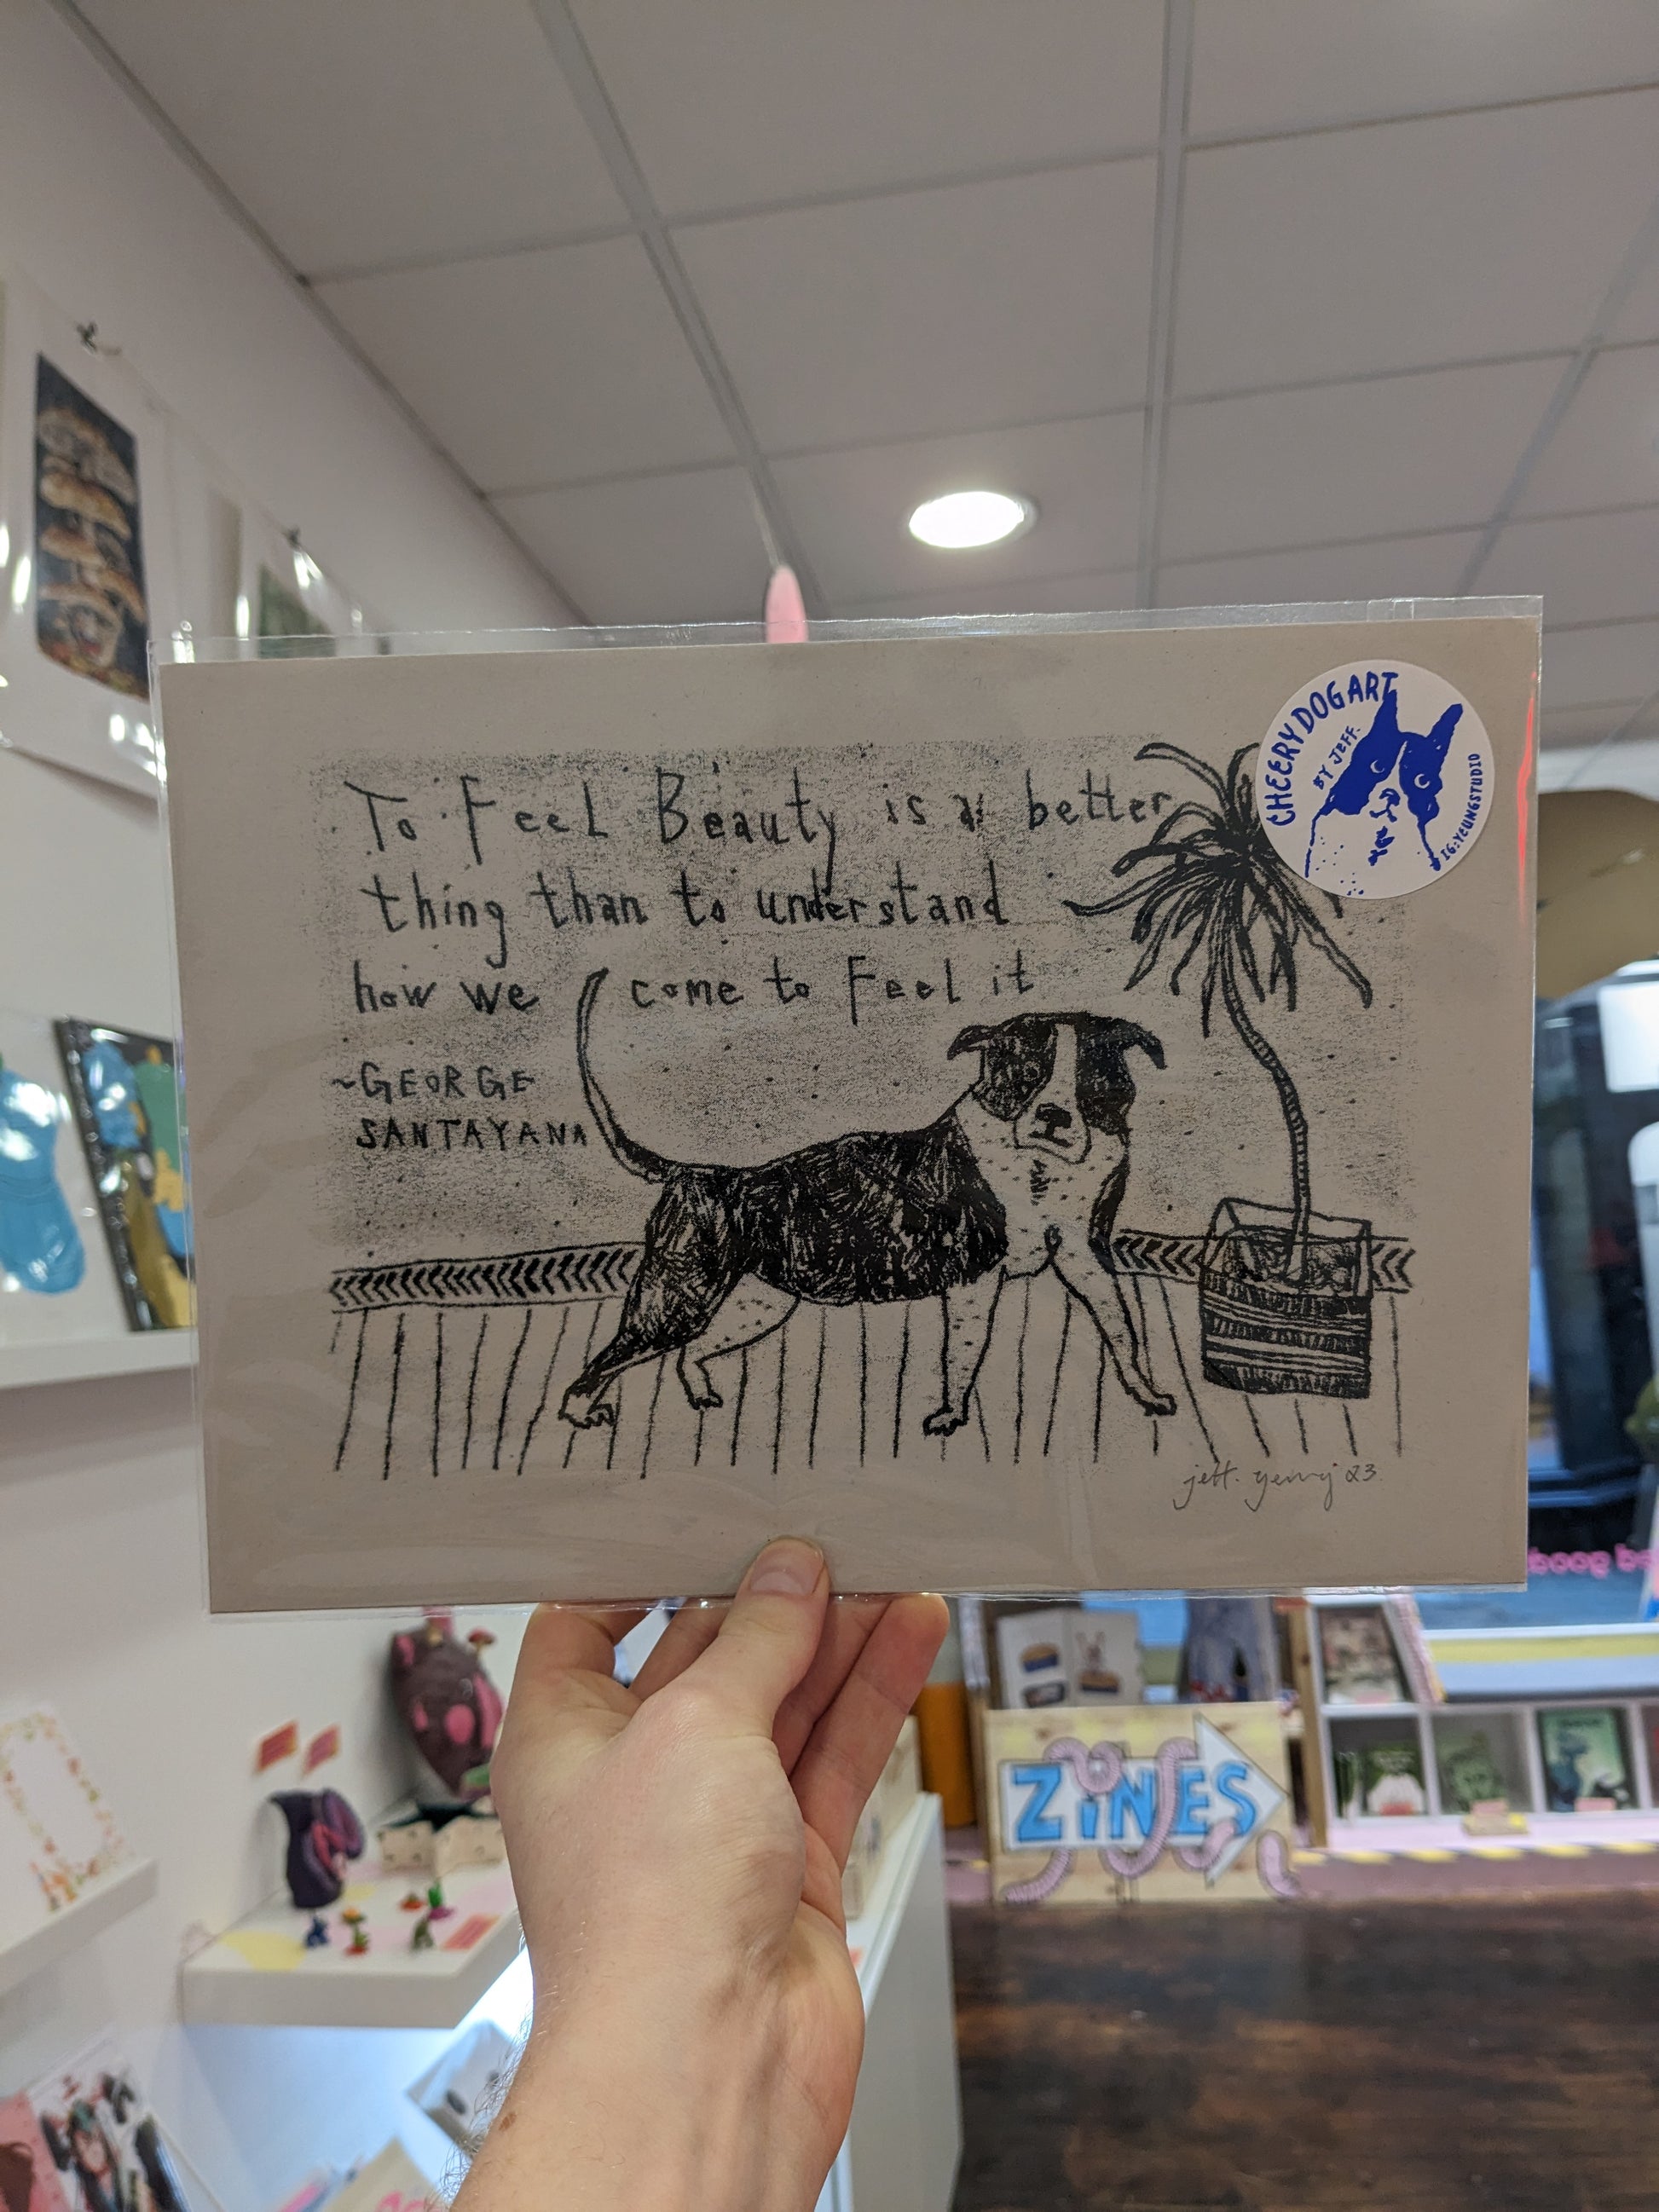 To Feel Beauty is a better
thing than to understand
how we come to Feel it
~GEORGE
SANTAYANA
CHEERYDOGART
BY JEFF.
IG:YEUNGSTUDIO
jeff. yeung 23.
ZINES